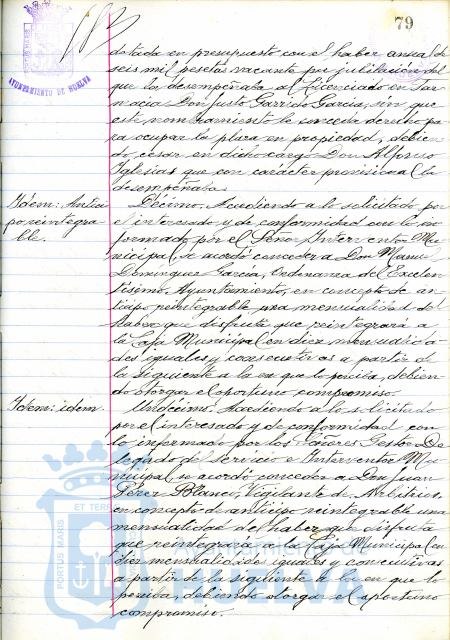 79
AYUNTAMIENTO DE HUELVA
dotada en presupuesto con el haber anual de
seis mil pesetas vacante por jubilación del
que la desempeñaba el Licenciado en Far-
macia Don Justo Garrido García, sin que
este nombramiento le conceda derecho pa-
ra ocupar la plaza en propiedad, debien-
do cesar en dicho cargo Don Alfonso
Iglesias que con carácter provisional la
desempeñaba.
Idem: Antici-
po reintegra-
ble.
Décimo. Accediendo a lo solicitado por
el interesado y de conformidad con lo in-
formado por el Señor Interventor Mu-
nicipal, se acordó conceder a Don Manuel
Domínguez García, Ordenanza del Excelen-
tísimo Ayuntamiento, en concepto de an-
ticipo reintegrable una mensualidad del
haber que disfruta que reintegrará a
la Caja Municipal en diez mensualida-
des iguales y consecutivas a partir de
la siguiente a la en que lo perciba, debien-
do otorgar el oportuno compromiso.
Idem: idem.
Undécimo. Accediendo a lo solicitado
por el interesado y de conformidad con
lo informado por los Señores Gestor De-
legado del servicio e Interventor Mu-
nicipal, se acordó conceder a Don Juan
Pérez Blanco, Vigilante de Arbitrios,
en concepto de anticipo reintegrable una
mensualidad del haber que disfruta
que reintegrará a la Caja Municipal en
diez mensualidades iguales y consecutivas
a partir de la siguiente a la en que lo
perciba, debiendo otorgar el oportuno
compromiso.
PORTUS MARIS
ET TERR
Ayuntamiento de